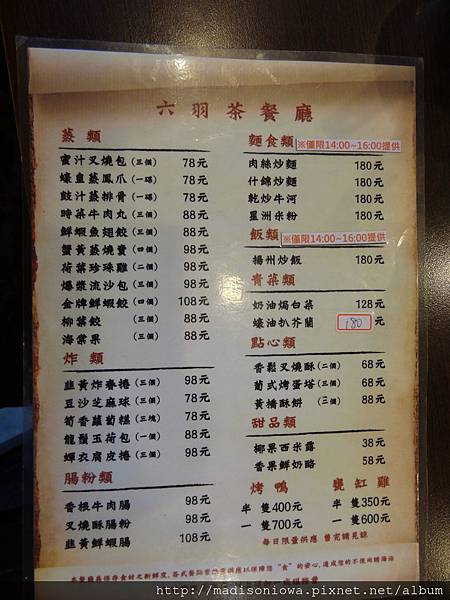 六羽茶餐廳
蒸類
蜜汁叉燒包(三個) 78元
蠔皇蒸鳳爪(一碟) 78元
豉汁蒸排骨(一碟) 78元
時菜牛肉丸(三個) 88元
鮮蝦魚翅餃(三個) 88元
蟹黃蒸燒賣(四個) 98元
荷葉珍珠雞(二個) 98元
爆漿流沙包(三個) 98元
金牌鮮蝦餃(四個) 108元
柳葉餃(三個) 88元
海棠果(三個) 88元
炸類
韭黃炸春捲(三個) 98元
豆沙芝麻球(三個) 78元
荀香蘿蔔糕(三塊) 78元
龍鬚玉荷包(一個) 88元
蟬衣腐皮捲(三個) 98元
腸粉類
香根牛肉腸 98元
叉燒酥腸粉 98元
韭黃鮮蝦腸 108元
麵食類 ※僅限14:00~16:00提供
肉絲炒麵 180元
什錦炒麵 180元
乾炒牛河 180元
星洲米粉 180元
飯類 ※僅限14:00~16:00提供
揚州炒飯 180元
青菜類
奶油焗白菜 128元
蠔油扒芥蘭 180元
點心類
香鬆叉燒酥(二個) 68元
葡式烤蛋塔(三個) 68元
黃橋酥餅(三個) 88元
甜品類
椰果西米露 38元
香果鮮奶酪 58元
烤鴨 甕缸雞
半隻400元 半隻350元
一隻700元 一隻600元
每日限量供應 售完請見諒
本餐廳為保存食材之新鮮度,各式餐點
http://madisoniowa.pixnet.net/album